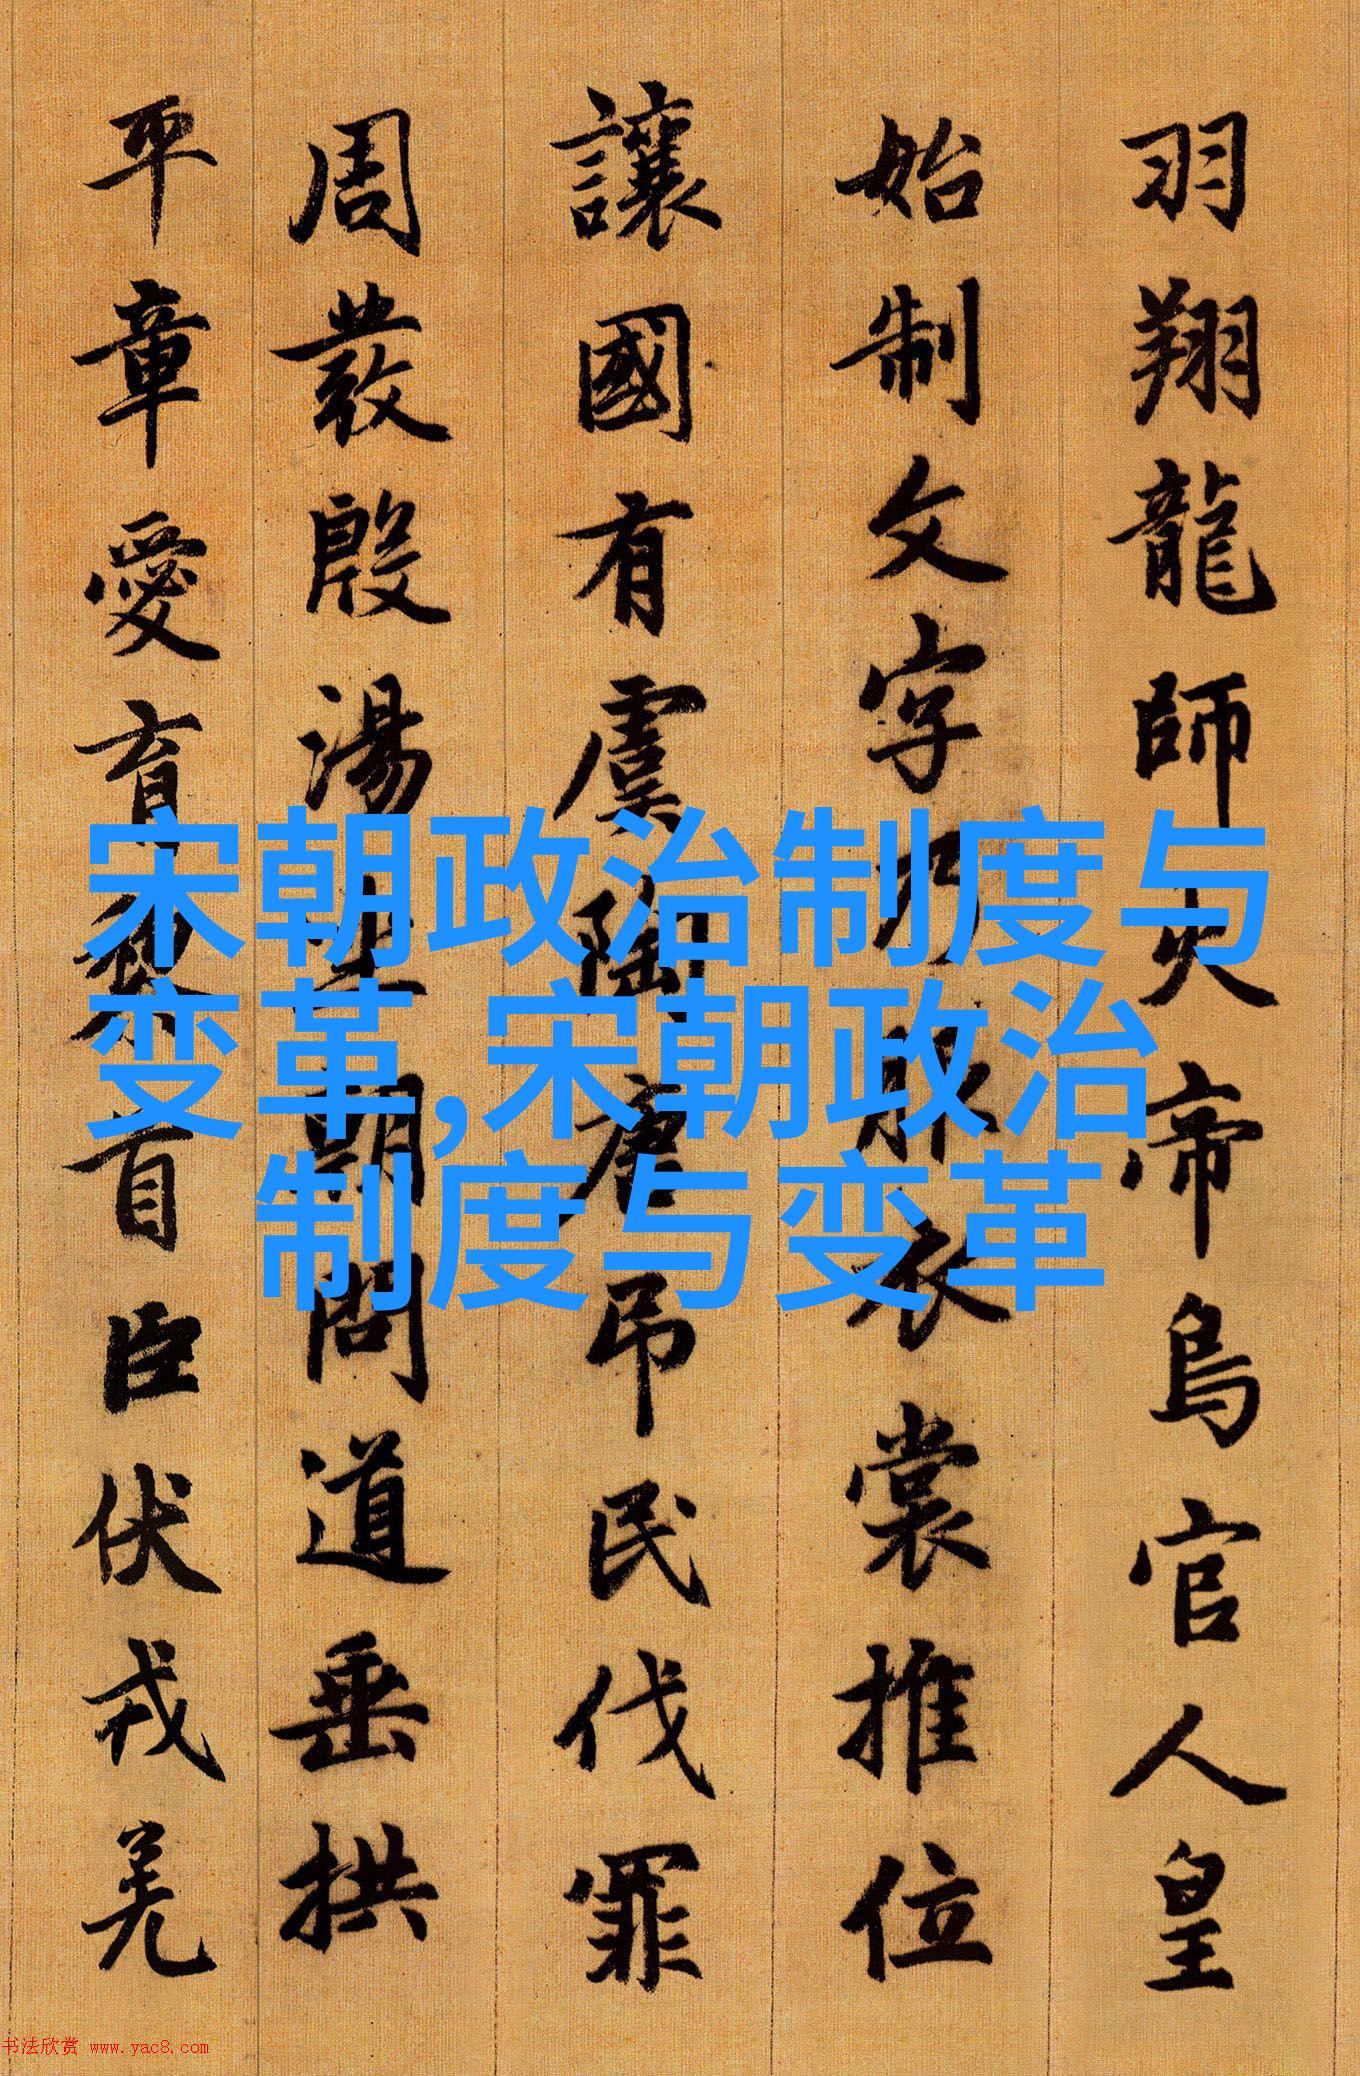 羽翔龍師火帝鳥官人皇
始制文字乃服衣裳推位
讓國有虞陶唐弔民伐罪
周發殷湯坐朝問道垂拱
平章愛育黎首臣伏戎羌
宋朝政治制度与
变革,宋朝政治
制度与变革
书法欣赏 www.yac8.com